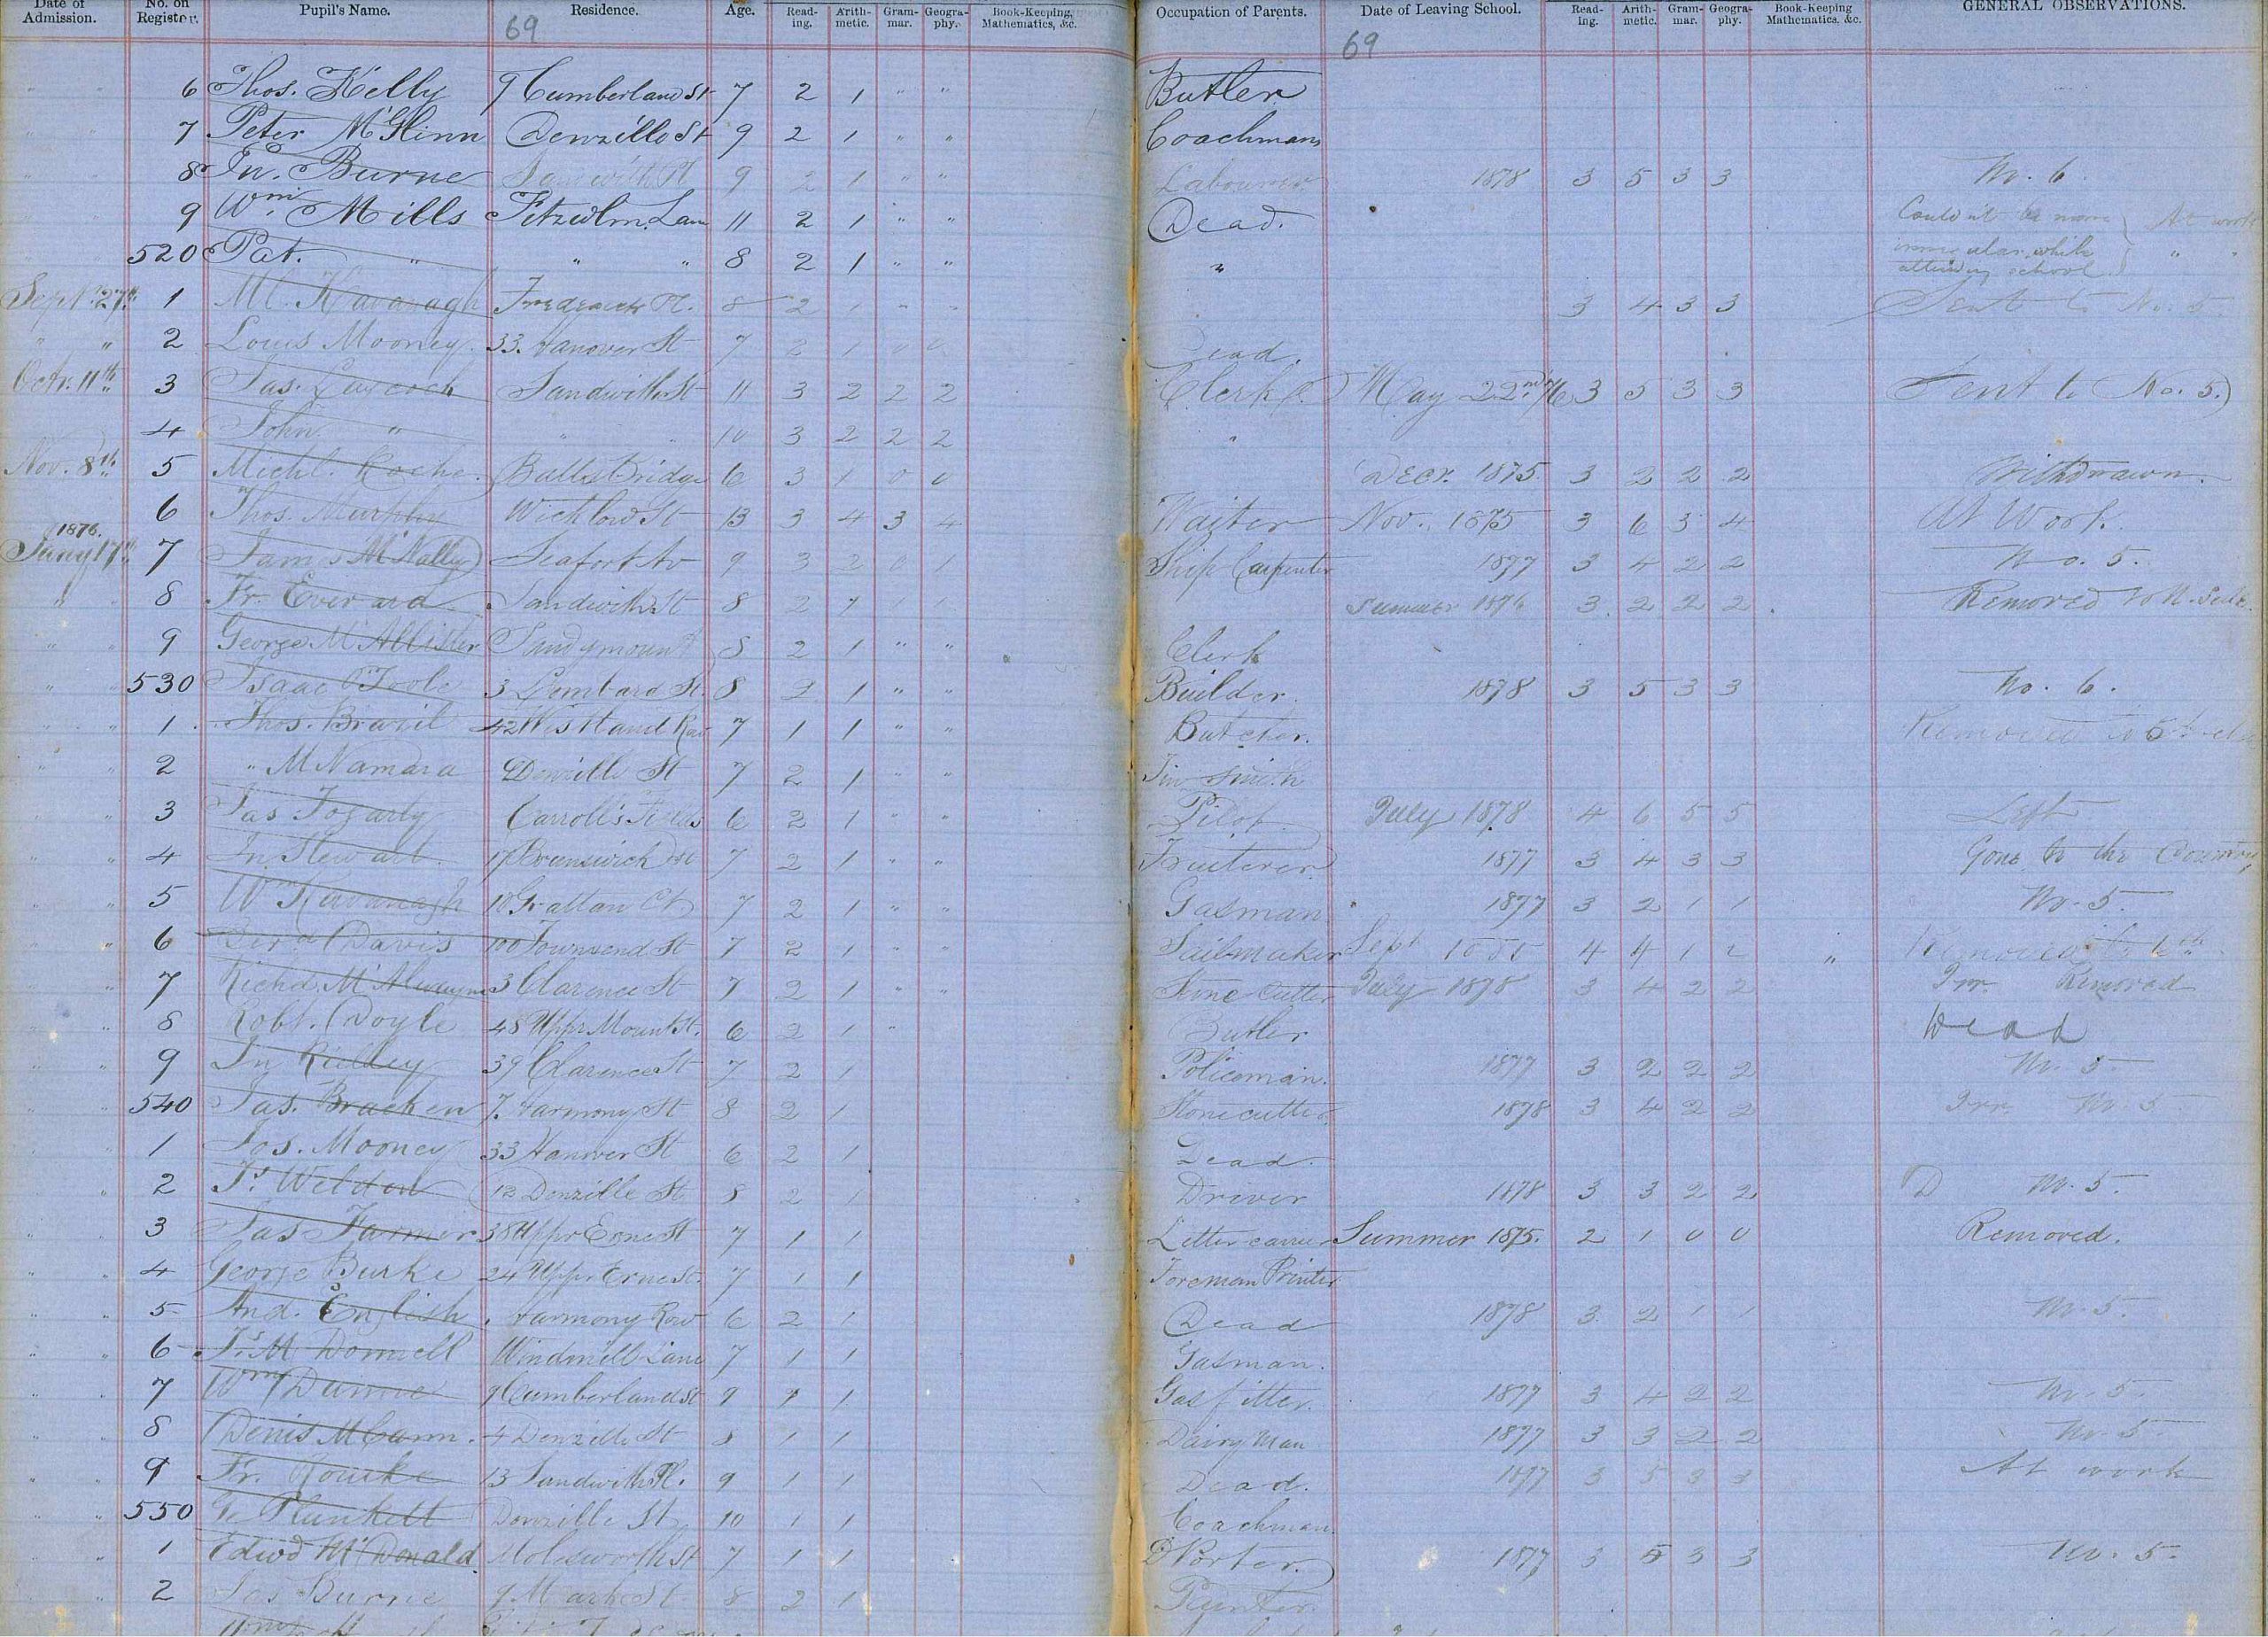 Date of Admission. No. on Register. Pupil's Name. Residence. Age. Reading. Arithmetic. Grammar. Geography. Book-Keeping, Mathematics, &c. Occupation of Parents. Date of Leaving School. Reading. Arithmetic. Grammar. Geography. Book-Keeping Mathematics, &c. GENERAL OBSERVATIONS.
69 69
" " 6 Thos. Kelly 9 Cumberland St 7 2 1 " " Butler
" " 7 Peter McGlinn Denzille St 9 2 1 " " Coachman
" " 8 Jn. Burne 9 2 1 " " Labourer 1878 3 5 3 3 No. 6
" " 9 Wm. Mills Fitzwlm. Lane 11 2 1 " " Dead. Could n't be more irregular while attending school } At work
" " 520 Pat. " " " 8 2 1 " " " " "
Sept. 27th 1 Ml. Kavanagh Frederick Pl. 8 2 1 " " 3 4 3 3 Sent to No. 5
" " 2 Louis Mooney. 33. Hanover St 7 2 1 0 0 Dead.
Octr. 11th 3 Jas. Sandwith St 11 3 2 2 2 Clerk May 22nd /76 3 5 3 3 Sent to No. 5.)
4 John " " " 10 3 2 2 2 "
Nov. 8th 5 Michl. Roche. Balls Bridge 6 3 1 0 0 Decr. 1875 3 2 2 2 Withdrawn.
6 Thos. Murphy Wicklow St 13 3 4 3 4 Waiter Nov. 1875 3 6 3 4 At Work.
1876. Jany 17th 7 James McNally Seafort Av 9 3 2 0 1 Ship Carpenter 1877 3 4 2 2 No. 5.
" " 8 Fr. Everard Sandwith St 8 2 1 1 Summer 1876 3 2 2 2 Removed to
" " 9 George McAllister Sandymount 8 2 1 " " Clerk
" " 530 Isaac O'Toole 3 Lombard St. 8 2 1 " " Builder. 1878 3 5 3 3 No. 6.
" " 1 Thos. Brazil 42 Westland Row 7 1 1 " " Butcher. Removed to 5th
" " 2 " McNamara 9 Denzille St 7 2 1 " " Tin Smith
" 3 Jas Fogarty Carroll's Fields 6 2 1 " " Pilot July 1878 4 6 5 5 Left
" " 4 Jn Stewart. 17 Brunswick 7 2 1 " " Fruiterer 1877 3 4 3 3 Gone to the Country
" " 5 Wm Kavanagh 10 Grattan Ct 7 2 1 " " Gasman 1877 3 2 1 1 No. 5.
" " 6 Davis 100 Townsend St 7 2 1 " " Sailmaker Sept 4 4 1 2 " Removed to 6th
" 7 Richd. 3 Clarence St 7 2 1 " " Stone Cutter July 1878 3 4 2 2 Irr. Removed
" 8 Robt. Doyle 48 Uppr Mount St. 6 2 1 " Butler Dead
" " 9 Jn 39 Clarence St 7 2 1 Policeman. 1877 3 2 2 2 No. 5.
" 540 Jas. Bracken 7. Harmony St 8 2 1 Stonecutter. 1878 3 4 2 2 Irr No. 5
" 1 Jos. Mooney 33 Hanover St 6 2 1 Dead.
" 2 Weldon 12 Denzille St 8 2 1 Driver 1878 3 3 2 2 D No. 5.
" 3 Jas Farmer 38 Uppr Erne St 7 1 1 Letter carrier Summer 1875. 2 1 0 0 Removed.
" " 4 George Burke 24 Uppr Erne St. 7 1 1 Foreman Printer
" " 5 And. English Harmony Row 6 2 1 Dead 1878 3 2 1 1 No. 5.
" " 6 McDonnell Windmill Lane 7 1 1 Gasman.
" " 7 Wm Dunne 9 Cumberland St 9 1 1 Gas fitter. 1877 3 4 2 2 No. 5.
" " 8 Denis McCann. 4 Denzille St 8 1 1 Dairy Man 1877 3 3 2 2 No. 5.
" " 9 Fr. Rourke 13 Sandwith Pl. 9 1 1 Dead. 1877 3 5 3 3 At work
" " 550 Plunkett Denzille St 10 1 1 Coachman.
" 1 Edwd McDonald. Molesworth St 7 1 1 Porter. 1877 3 5 3 3 No. 5.
" " 2 Burne 9 Mark St 8 2 1